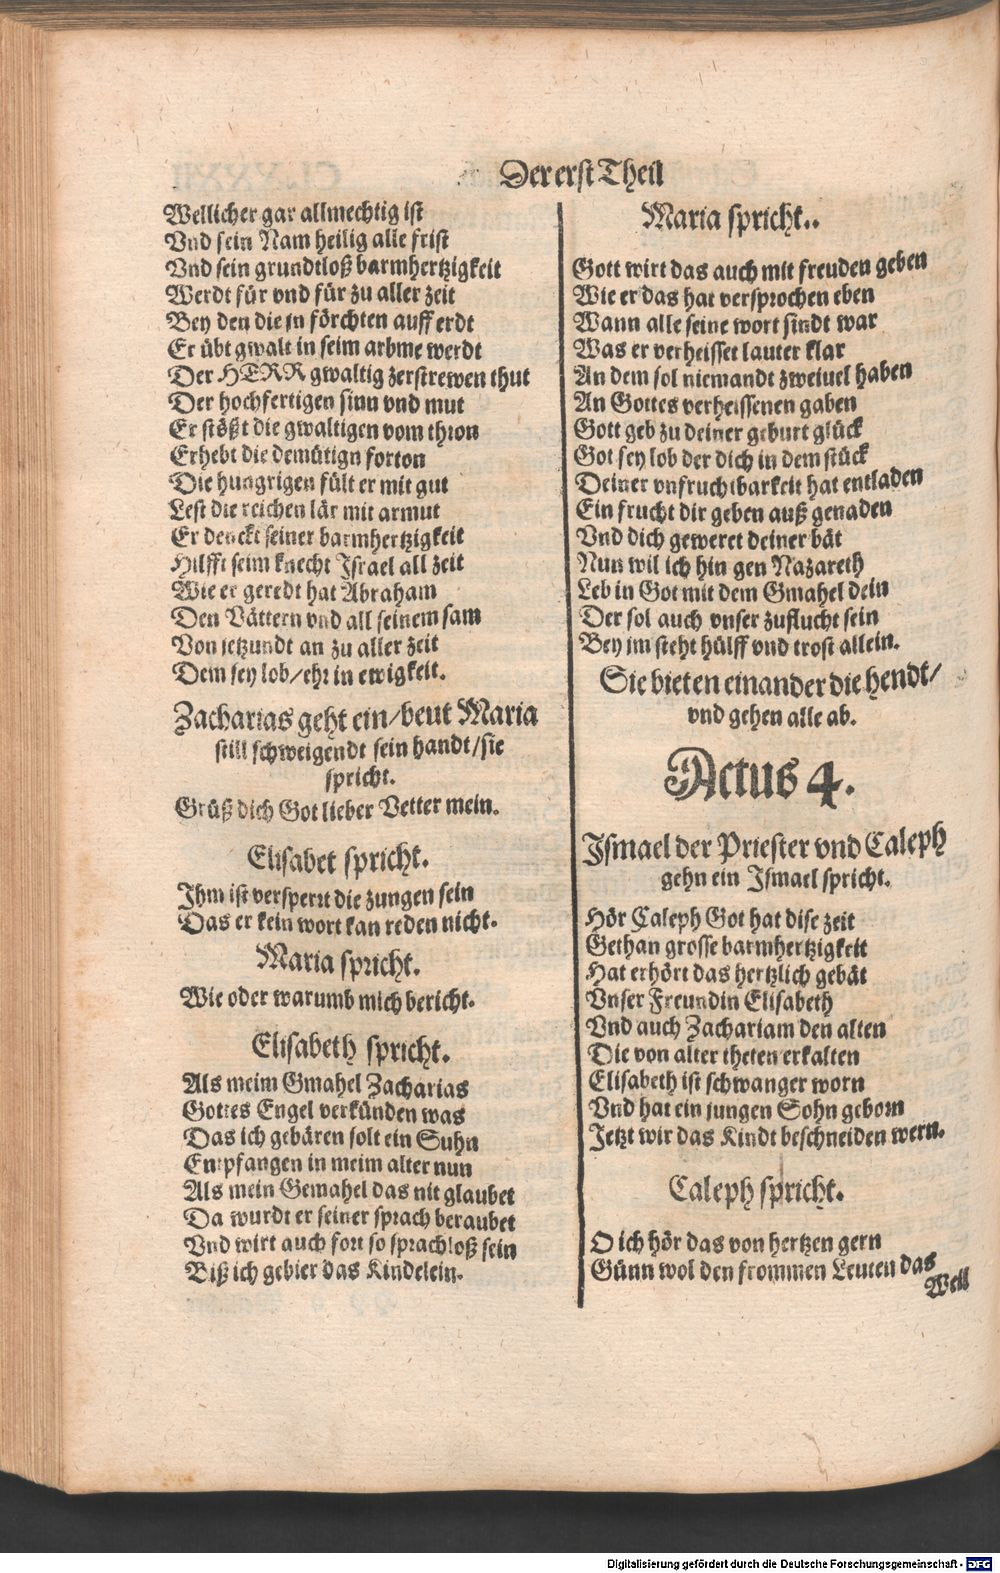 Der erst Theil
Wellicher gar allmechtig ist
Vnd sein Nam heilig alle frist
Vnd sein grundtloß barmhertzigkeit
Werdt für vnd für zu aller zeit
Bey den die jn förchten auff erdt
Er übt gwalt in seim arbme werdt
Der HERR gwaltig zerstrewen thut
Der hochfertigen sinn vnd mut
Er stößt die gwaltigen vom thron
Erhebt die demütign forton
Die hungrigen fült er mit gut
Lest die reichen lär mit armut
Er denckt seiner barmhertzigkeit
Hilfft seim knecht Israel all zeit
Wie er geredt hat Abraham
Den Vättern vnd all seinem sam
Von jetzundt an zu aller zeit
Dem sey lob/ehr in ewigkeit.
Zacharias geht ein/beut Maria
still schweigendt sein handt/sie
spricht.
Grüß dich Got lieber Vetter mein.
Elisabet spricht.
Ihm ist versperrt die zungen sein
Das er kein wort kan reden nicht.
Maria spricht.
Wie oder warumb mich bericht.
Elisabeth spricht.
Als meim Gmahel Zacharias
Gottes Engel verkünden was
Das ich gebären solt ein Suhn
Entpfangen in meim alter nun
Als mein Gemahel das nit glaubet
Da wurdt er seiner sprach beraubet
Vnd wirt auch fort so sprachloß sein
Biß ich gebier das Kindelein.
Maria spricht..
Gott wirt das auch mit freuden geben
Wie er das hat versprochen eben
Wann alle seine wort sindt war
Was er verheisset lauter klar
An dem sol niemandt zweiuel haben
An Gottes verheissenen gaben
Gott geb zu deiner geburt glück
Got sey lob der dich in dem stück
Deiner vnfruchtbarkeit hat entladen
Ein frucht dir geben auß genaden
Vnd dich geweret deiner bät
Nun wil ich hin gen Nazareth
Leb in Got mit dem Gmahel dein
Der sol auch vnser zuflucht sein
Bey jm steht hülff vnd trost allein.
Sie bieten einander die hendt/
vnd gehen alle ab.
Actus 4.
Ismael der Priester vnd Caleph
gehn ein Ismael spricht.
Hör Caleph Got hat dise zeit
Gethan grosse barmhertzigkeit
Hat erhört das hertzlich gebät
Vnser Freundin Elisabeth
Vnd auch Zachariam den alten
Die von alter theten erkalten
Elisabeth ist schwanger worn
Vnd hat ein jungen Sohn geborn
Jetzt wir das Kindt beschneiden wern.
Caleph spricht.
O ich hör das von hertzen gern
Günn wol den frommen Leuten das
Well
Digitalisierung gefördert durch die Deutsche Forschungsgemeinschaft - DFG